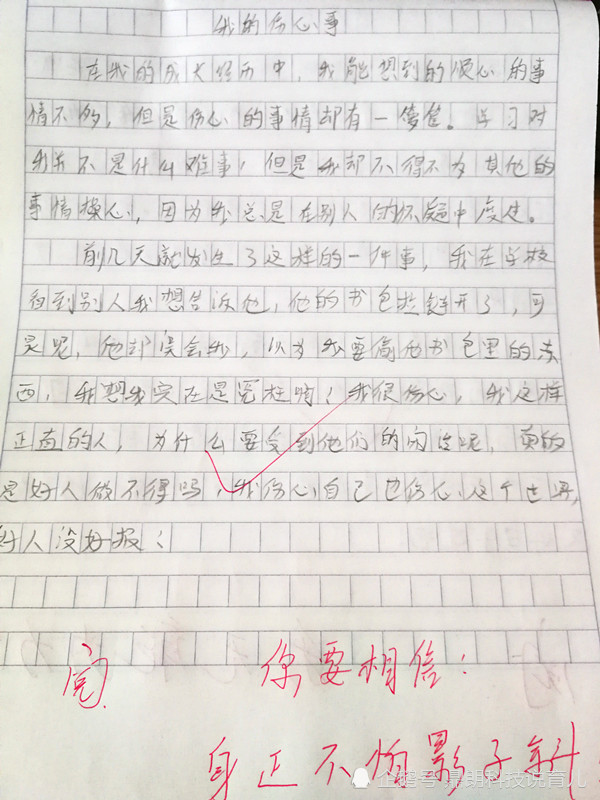 我的伤心事
在我的成长经历中，我能想到的顺心的事
情不多，但是伤心的事情却有一箩筐。学习对
我来不是什么难事，但是我却不得不为其他的
事情操心，因为我总是在别人的怀疑中度过。
前几天就发生了这样的一件事，我在学校
看到别人我想告诉他，他的书包拉链开了，可
是呢，他却误会我，以为我要偷他书包里的东
西，我想我实在是冤枉啊！我很伤心，我这样
正直的人，为什么要受到他们的呢，真的
是好人做不得吗，我伤心自己也伤心这个世界，
好人没好报！
你要相信：
身正不怕影子斜
企鹅号 鼎玥科技说育儿